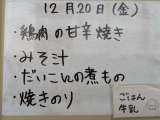 12月20日(金)
・鶏肉の甘辛焼き
・みそ汁
・だいこんの煮もの
・焼きのり
ごはん
牛乳